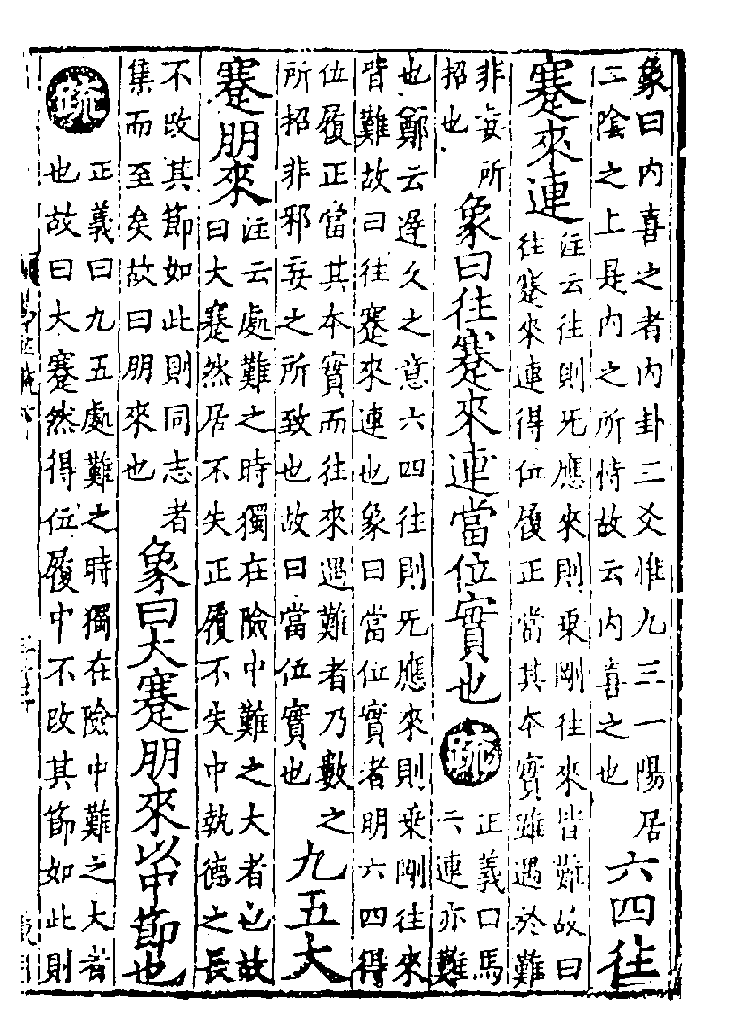 象曰內喜之者內卦三爻惟九三一陽居
二陰之上是內之所恃故云內喜之也
六四往
蹇來連
注云往則无應來則乗剛往來皆難故曰
往蹇來連得位履正當其本實雖遇於難
非妄所
招也
象曰往蹇來連當位實也
疏
正義曰馬
云連亦難
也鄭云遲久之意六四往則无應來則乗剛往來
皆難故曰往蹇來連也象曰當位實者明六四得
位履正當其本實而往來遇難者乃數之
所招非邪妄之所致也故曰當位實也
九五大
蹇朋來
注云處難之時獨在險中難之大者也故
曰大蹇然居不失正履不失中執德之長
不改其節如此則同志者
集而至矣故曰朋來也
象曰大蹇朋來以中節也
疏
正義曰九五處難之時獨在險中難之大者
也故曰大蹇然得位履中不改其節如此則